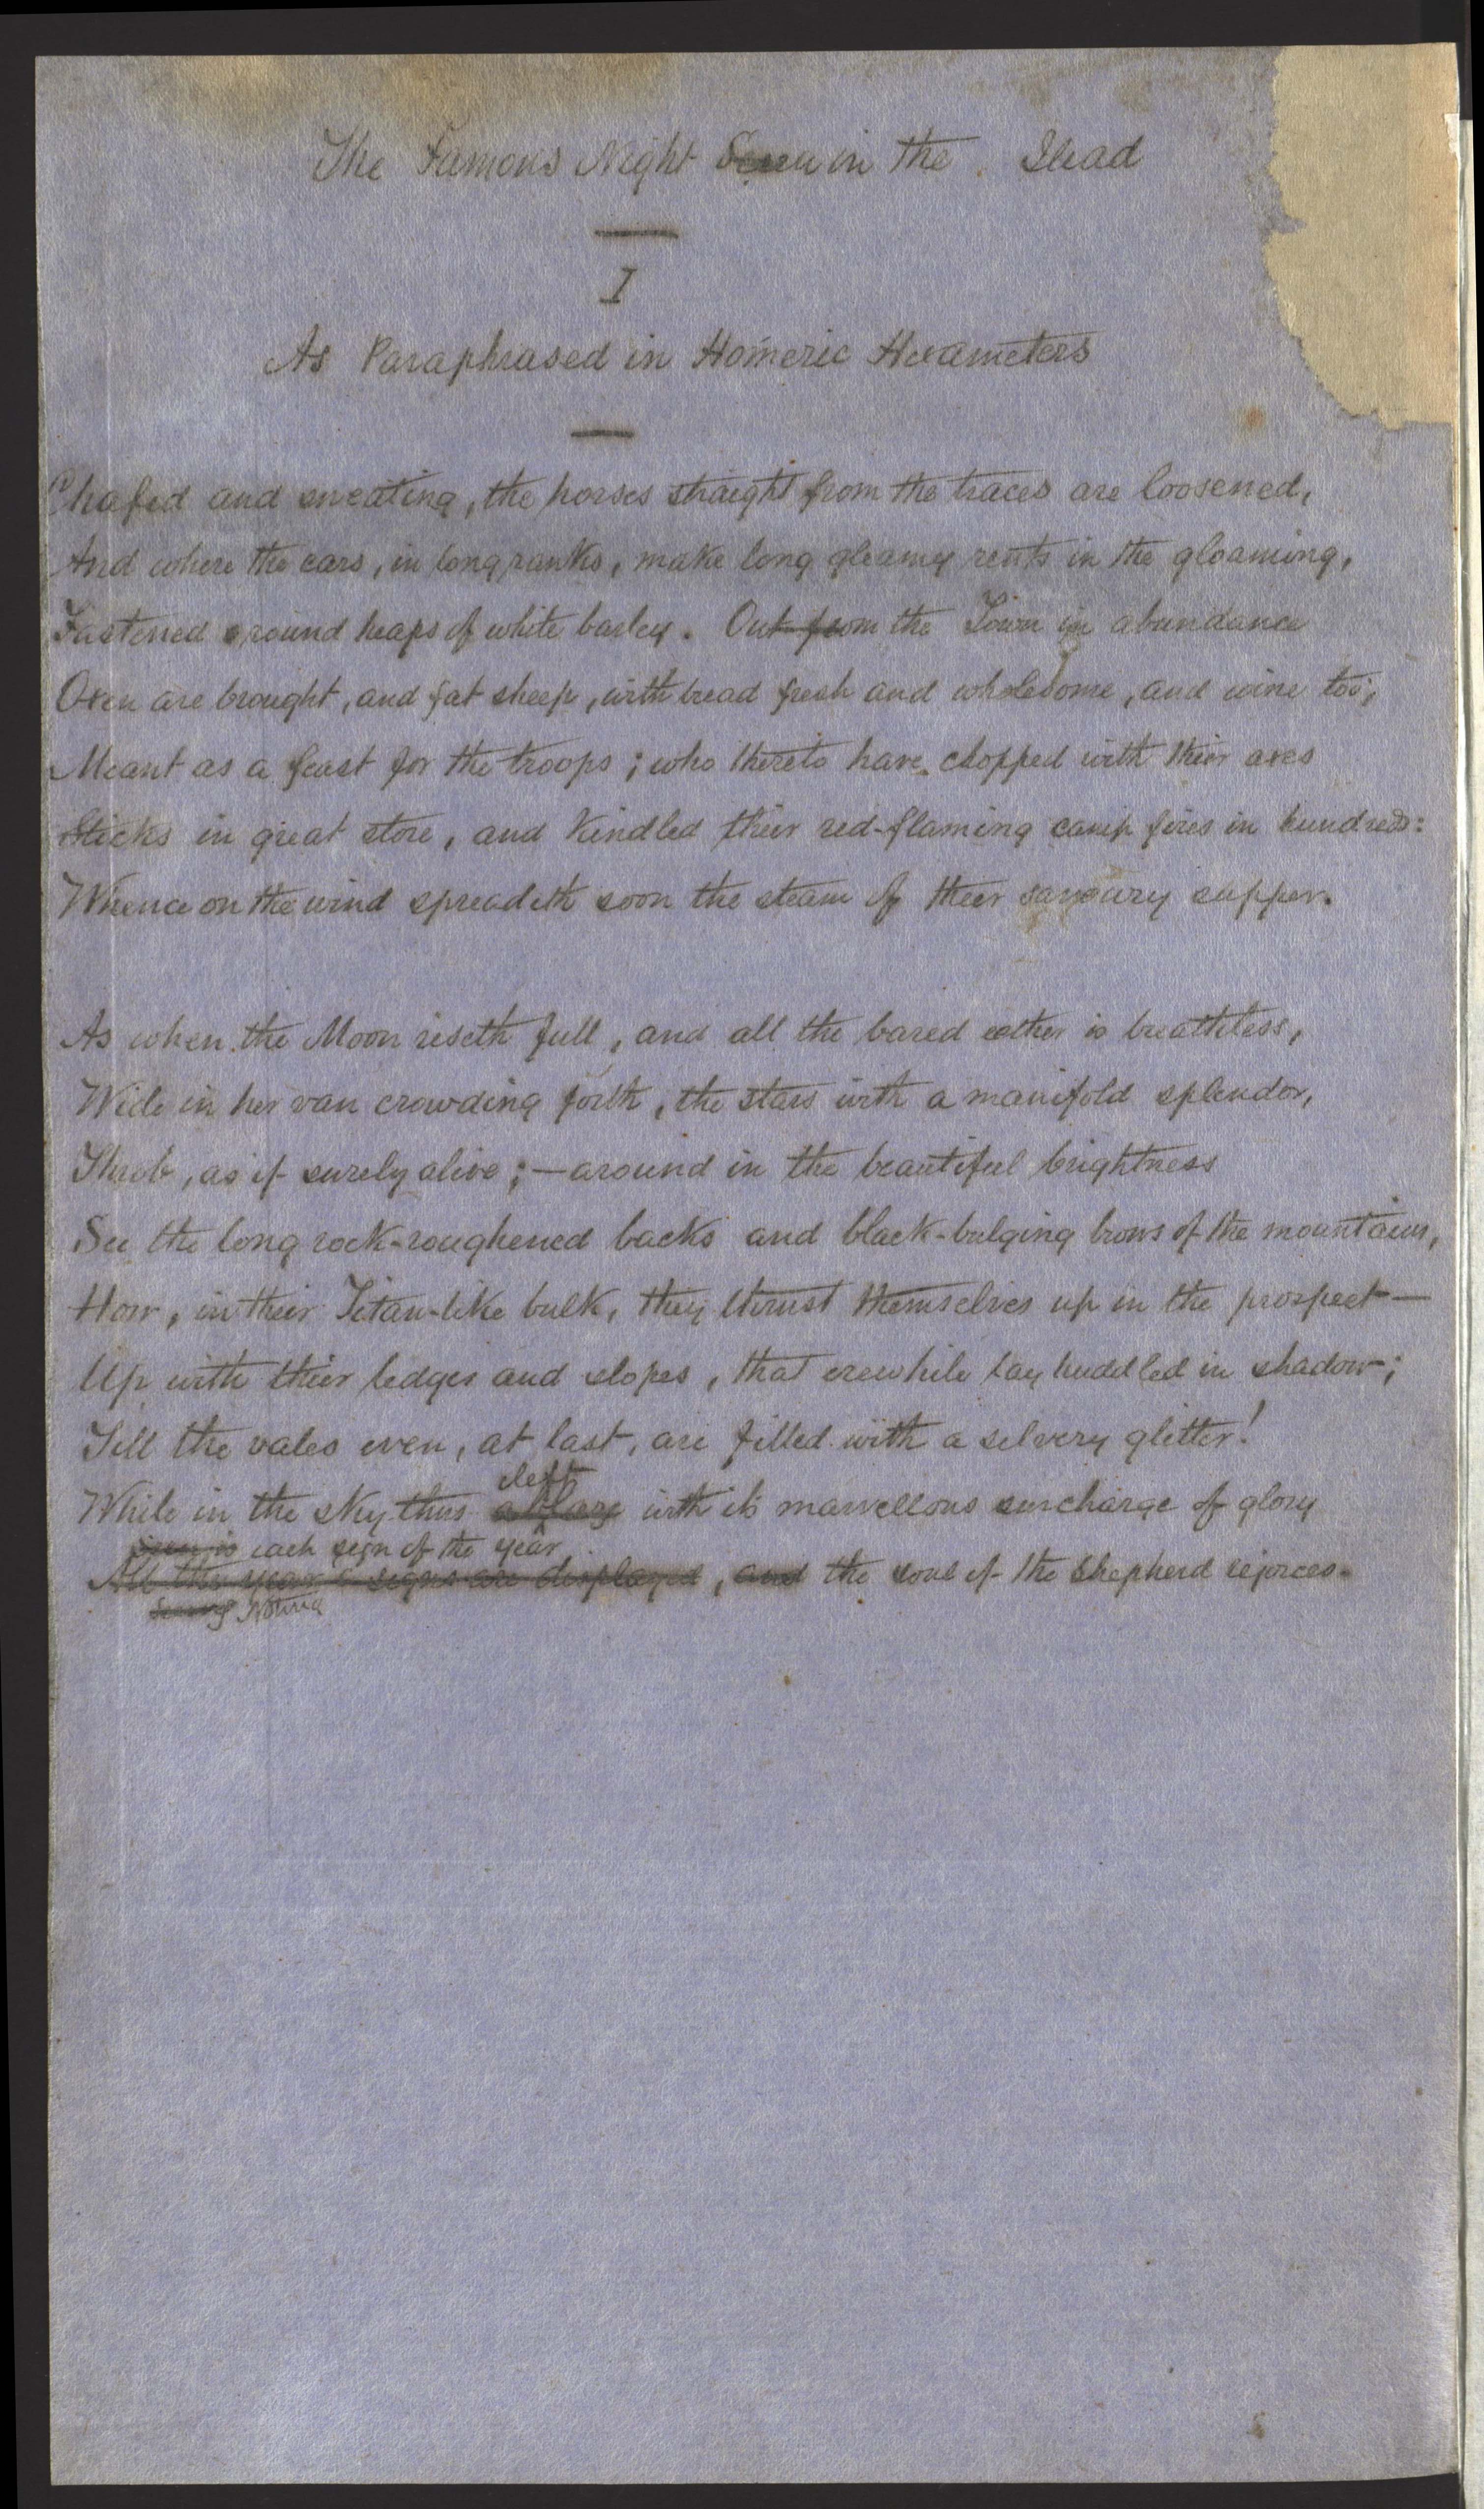 The Famous Night Scene in the Iliad
I
As Paraphrased in Homeric Hexameters
Chafed and sweating, the horses straight from the traces are loosened,
And where the cars, in long ranks, make long gleamy rents in the gloaming,
Fastened around heaps of white barley. Out from the Town in abundance
Oxen are brought, and fat sheep, with bread fresh and wholesome, and wine too;
Meant as a feast for the troops; who thereto have chopped with their axes
Sticks in great store, and kindled their red-flaming camp fires in hundreds:
Whence on the wind spreadeth soon the steam of their savoury supper.
As when the Moon riseth full, and all the bared æther is breathless,
Wide in her van crowding forth, the stars with a manifold splendor,
Throb, as if surely alive; — around in the beautiful brightness
See the long rock-roughened backs and black-bulging brows of the mountains,
How, in their Titan-like bulk, they thrust themselves up in the prospect —
Up with their ledges and slopes, that erewhile lay huddled in shadow;
Till the vales even, at last, are filled with a silvery glitter!
cleft
While in the sky thus ablaze with its marvellous surcharge of glory
Seen is each sign of the year
All the year's signs are displayed, and the soul of the Shepherd rejoices.
Noting